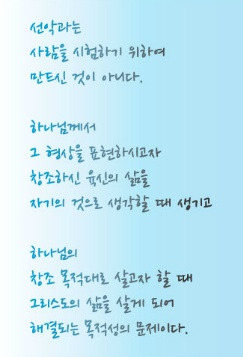 선악과는
사람을 시험하기 위하여
만드신 것이 아니다.
하나님께서
그 형상을 표현하시고자
창조하신 육신의 삶을
자기의 것으로 생각할 때 생기고
하나님의
창조 목적대로 살고자 할 때
그리스도의 삶을 살게 되어
해결되는 목적성의 문제이다.